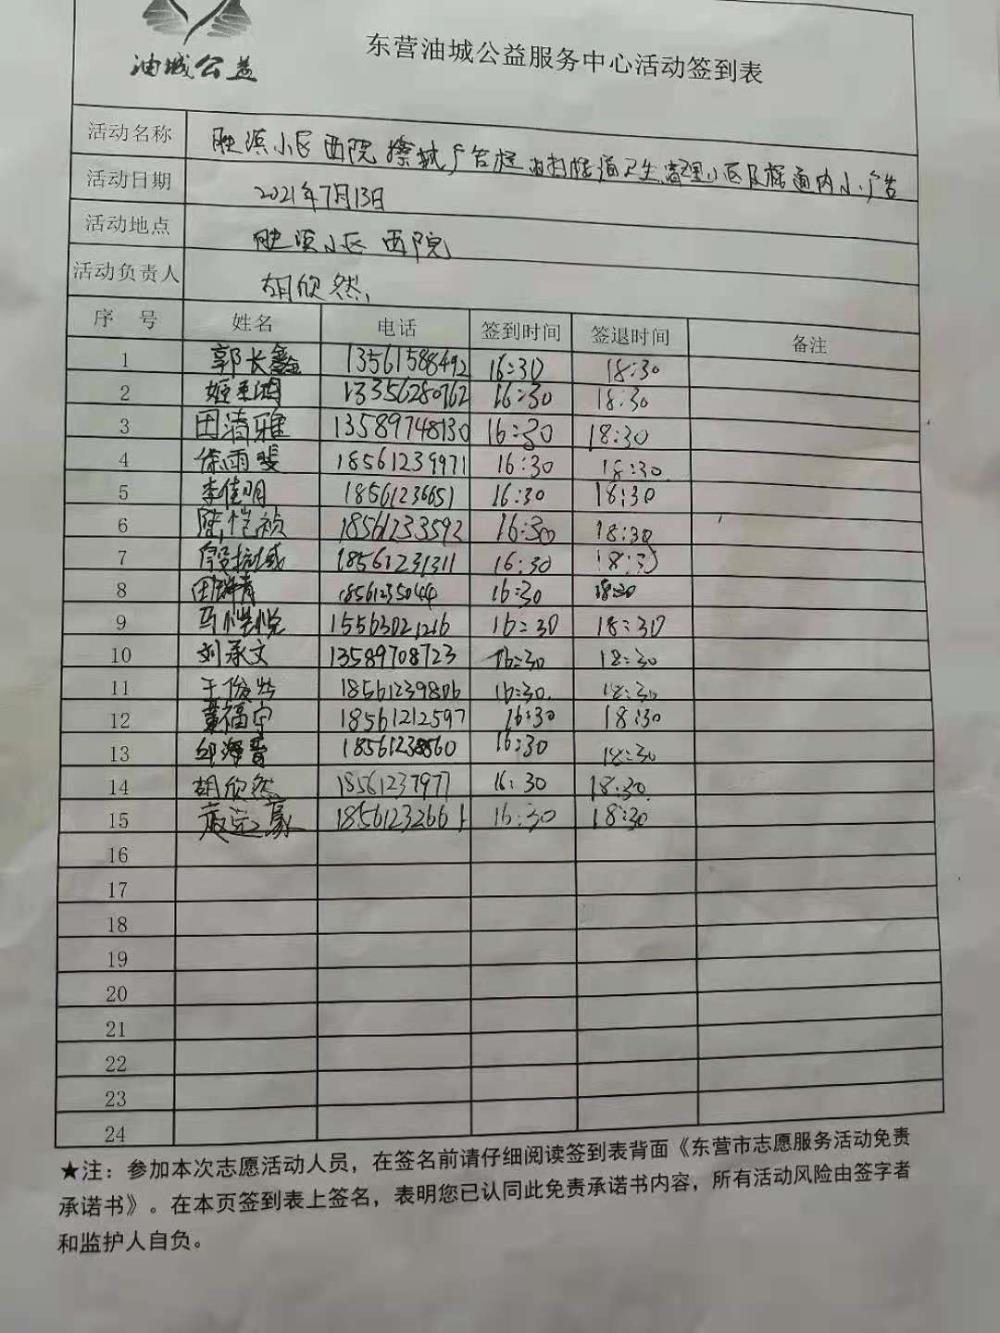 油城公益
东营油城公益服务中心活动签到表
活动名称 胜滨小区西院擦拭广告栏 清扫楼道卫生清理小区及楼道内小广告
活动日期 2021年7月13日
活动地点 胜滨小区西院
活动负责人 胡欣然
序 号 姓名 电话 签到时间 签退时间 备注
1 郭长鑫 13561588492 16:30 18:30
2 13356280762 16:30 18:30
3 田清雅 13589748130 16:30 18:30
4 徐雨斐 18561239971 16:30 18:30
5 李佳明 18561236651 16:30 18:30
6 陈恺祯 18561233592 16:30 18:30
7 18561231311 16:30 18:30
8 18561235044 16:30 18:30
9 马恺悦 15563021216 16:30 18:30
10 刘承文 13589708723 16:30 18:30
11 18561239806 16:30 18:30
12 董福宁 18561212597 16:30 18:30
13 邱泽晋 16:30 18:30
14 胡欣然 18561237977 16:30 18:30
15 18561232661 16:30 18:30
16
17
18
19
20
21
22
23
24
★注：参加本次志愿活动人员，在签名前请仔细阅读签到表背面《东营市志愿服务活动免责
承诺书》。在本页签到表上签名，表明您已认同此免责承诺书内容，所有活动风险由签字者
和监护人自负。